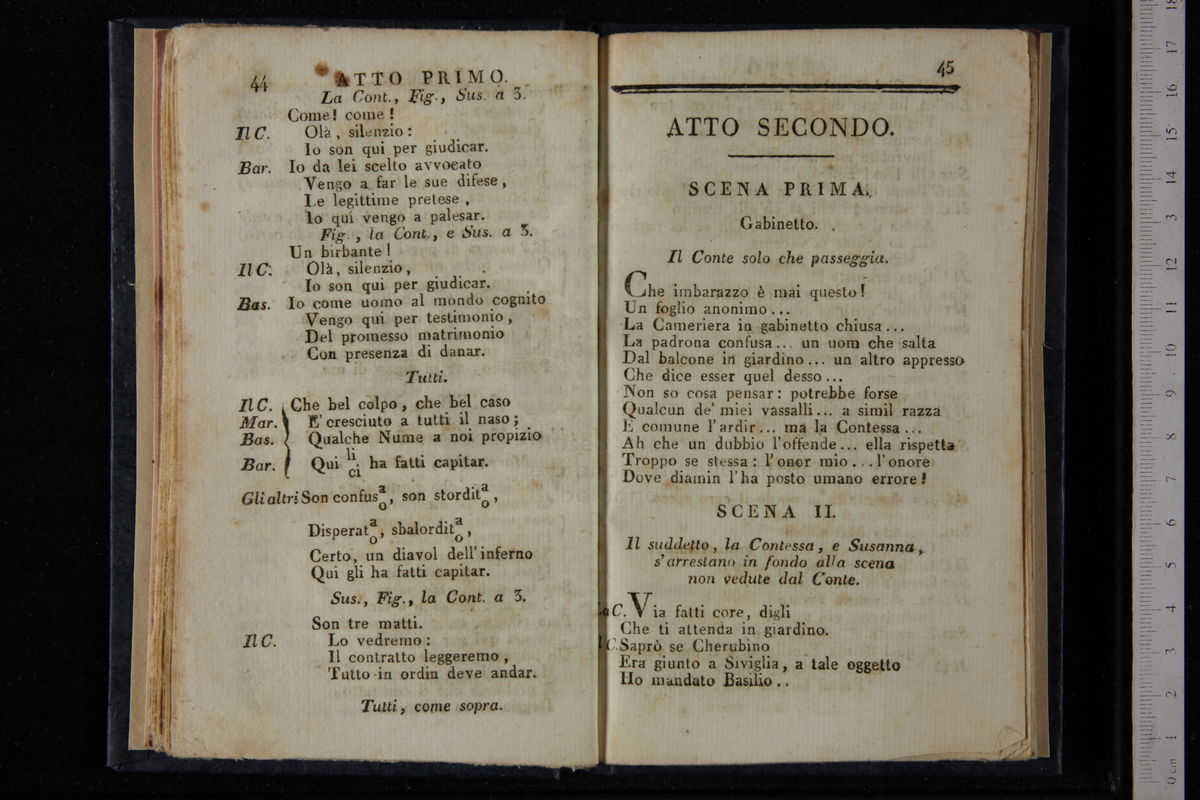 44 ATTO PRIMO.
La Cont., Fig., Sus. a 3.
Come! come!
Il C. Olà, silenzio:
Io son qui per giudicar.
Bar. Io da lei scelto avvocato
Vengo a far le sue difese,
Le legittime pretese,
Io qui vengo a palesar.
Fig., la Cont., e Sus. a 3.
Un birbante!
Il C. Olà, silenzio,
Io son qui per giudicar.
Bas. Io come uomo al mondo cognito
Vengo qui per testimonio,
Del promesso matrimonio
Con presenza di danar.
Tutti.
Il C. Che bel colpo, che bel caso
Mar. E' cresciuto a tutti il naso;
Bas. Qualche Nume a noi propizio
Bar. Qui li/ci ha fatti capitar.
Gli altri Son confus a/o, son stordit a/o,
Disperat a/o, sbalordit a/o,
Certo, un diavol dell'inferno
Qui gli ha fatti capitar.
Sus., Fig., la Cont. a 3.
Son tre matti.
Il C. Lo vedremo:
Il contratto leggeremo,
Tutto in ordin deve andar.
Tutti, come sopra.
45
ATTO SECONDO.
SCENA PRIMA.
Gabinetto.
Il Conte solo che passeggia.
Che imbarazzo è mai questo!
Un foglio anonimo...
La Cameriera in gabinetto chiusa...
La padrona confusa... un uom che salta
Dal balcone in giardino... un altro appresso
Che dice esser quel desso...
Non so cosa pensar: potrebbe forse
Qualcun de' miei vassalli... a simil razza
E comune l'ardir... ma la Contessa...
Ah che un dubbio l'offende... ella rispetta
Troppo se stessa: l'onor mio... l'onore
Dove diamin l'ha posto umano errore!
SCENA II.
Il suddetto, la Contessa, e Susanna,
s'arrestano in fondo alla scena
non vedute dal Conte.
La C. Via fatti core, digli
Che ti attenda in giardino.
Il C. Saprò se Cherubino
Era giunto a Siviglia, a tale oggetto
Ho mandato Basilio..
0 cm 1 2 3 4 5 6 7 8 9 10 11 12 13 14 15 16 17 18